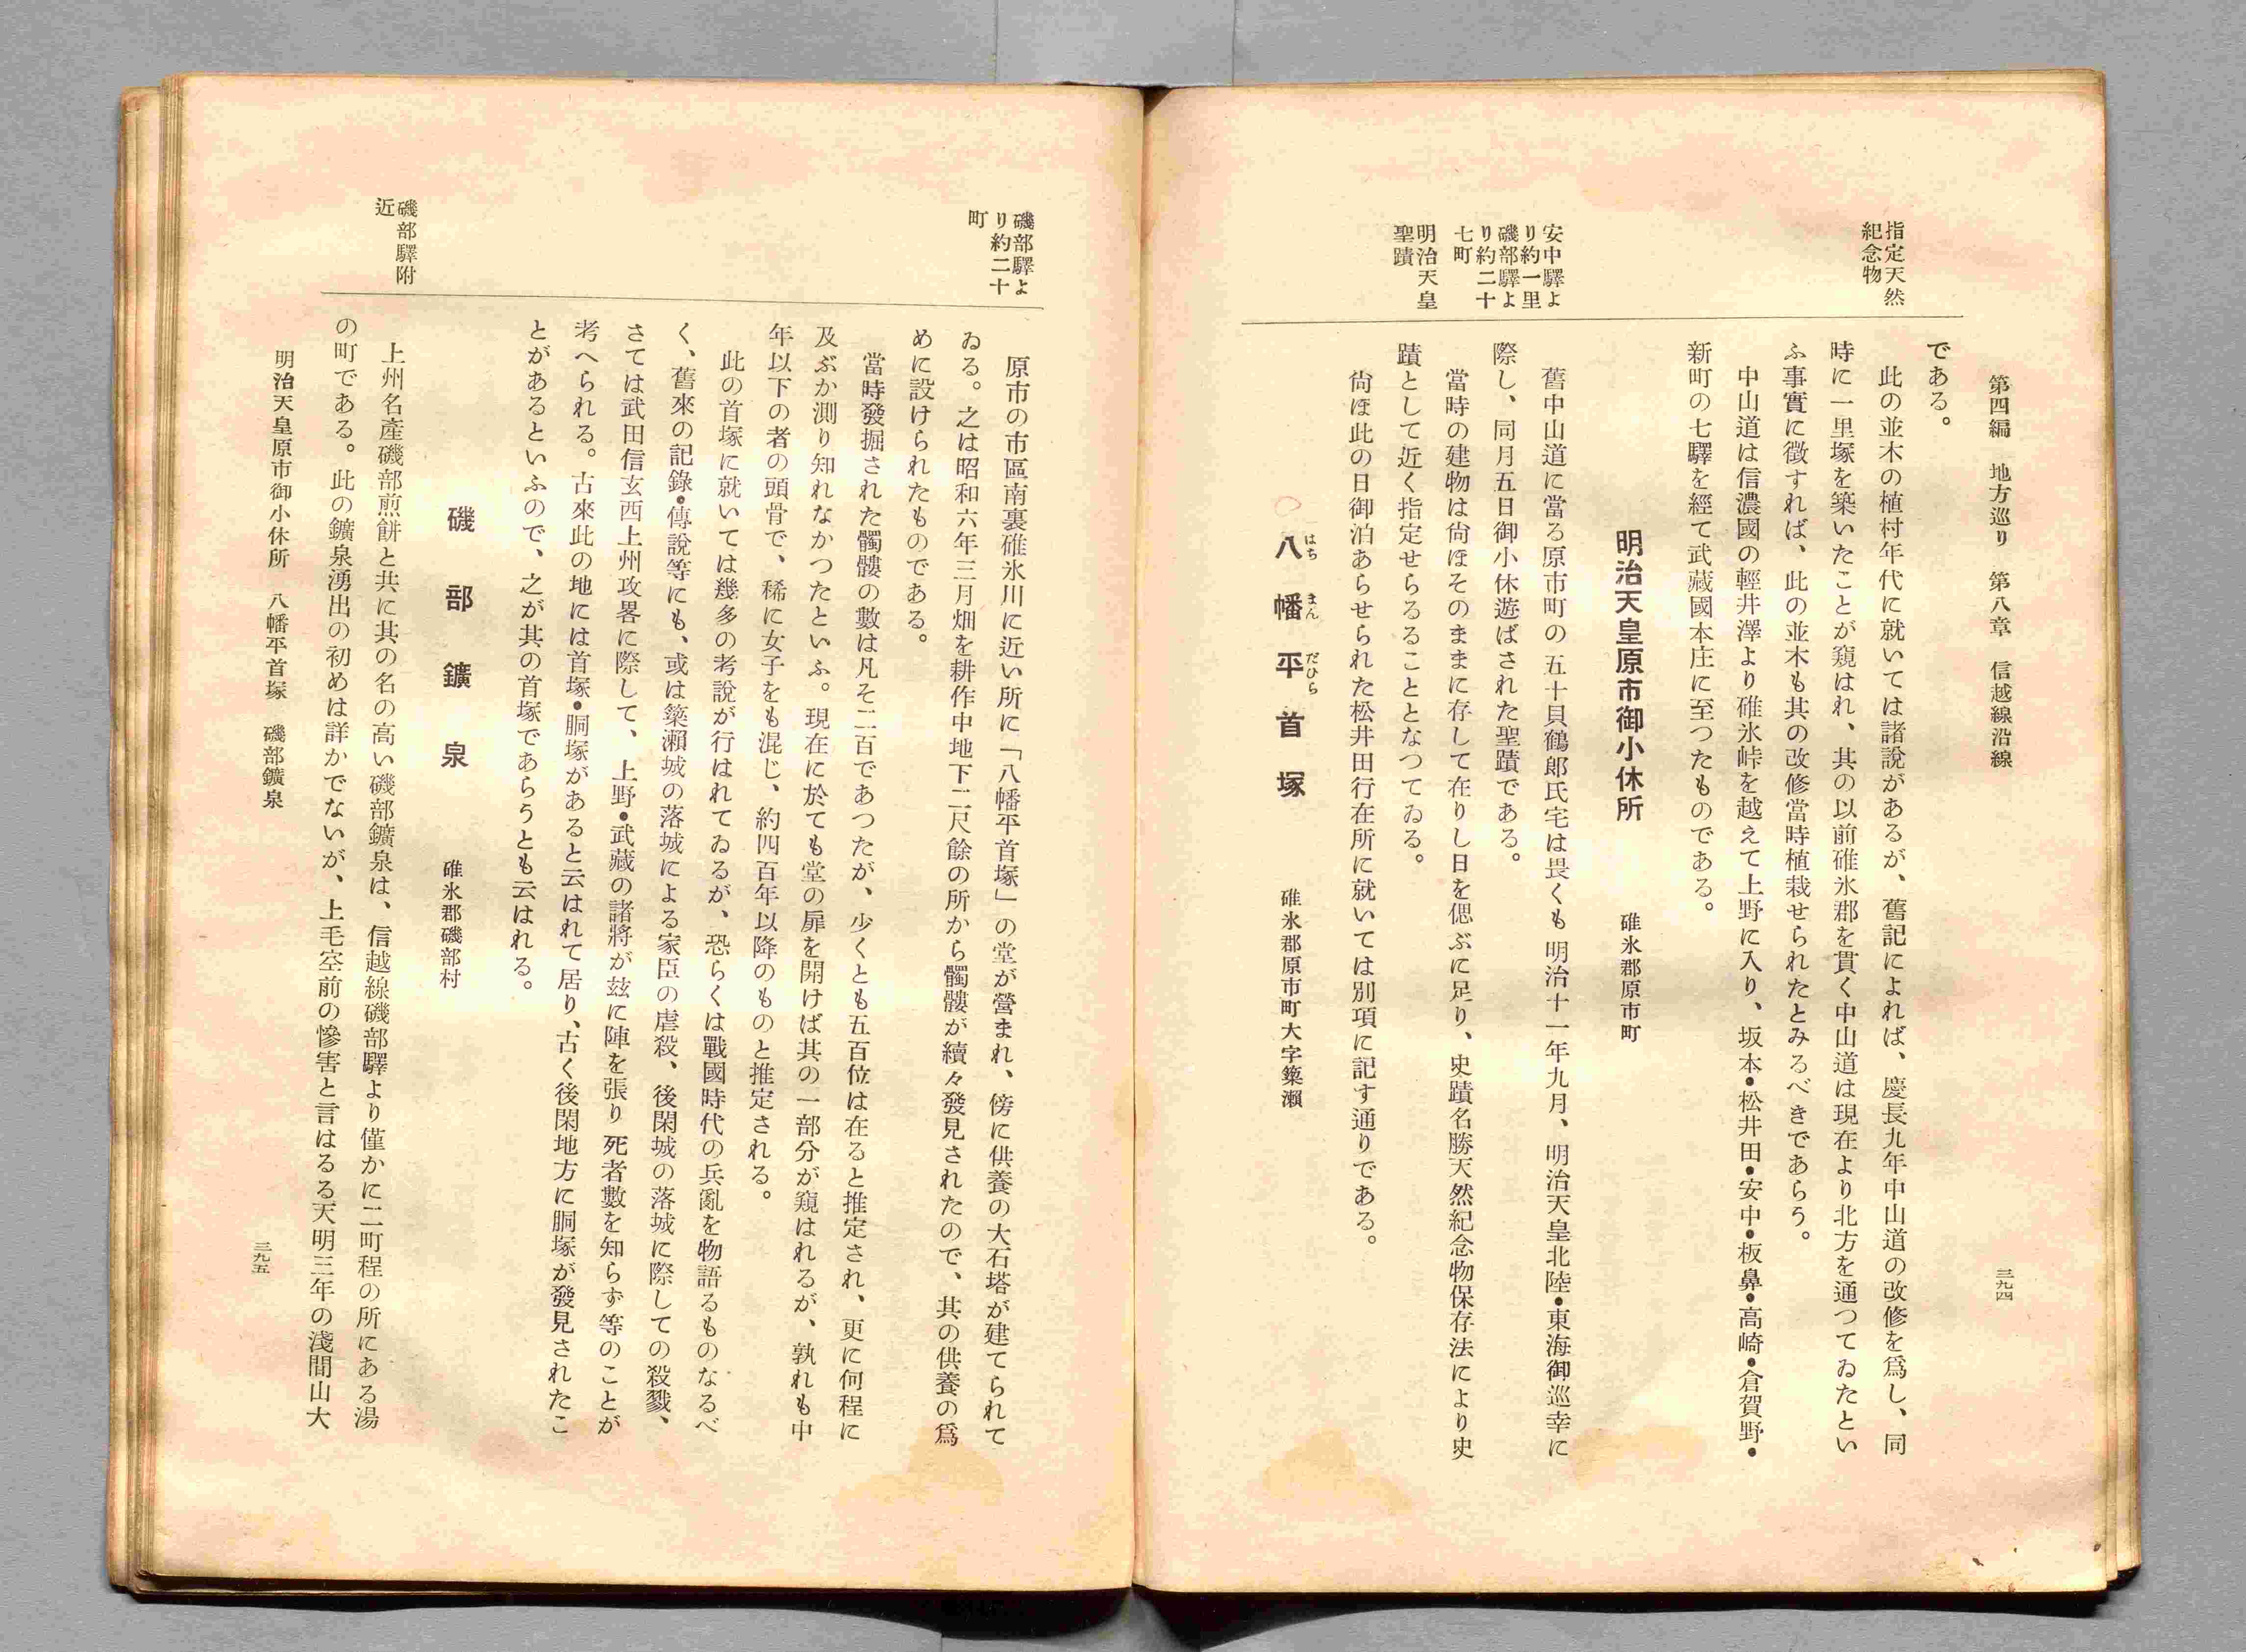 第四編　地方巡り　第八章　信越線沿線
三九四
指定天然
紀念物
である。
此の並木の植村年代に就いては諸說があるが、舊記によれば、慶長九年中山道の改修を爲し、同
時に一里塚を築いたことが窺はれ、其の以前碓氷郡を貫く中山道は現在より北方を通つてゐたとい
ふ事實に徵すれば、此の並木も其の改修當時植栽せられたとみるべきであらう。
中山道は信濃國の輕井澤より碓氷峠を越えて上野に入り、坂本・松井田・安中・板鼻・高崎・倉賀野・
新町の七驛を經て武藏國本庄に至つたものである。
明治天皇原市御小休所
碓氷郡原市町
安中驛よ
り約一里
磯部驛よ
り約二十
七町
明治天皇
聖蹟
舊中山道に當る原市町の五十貝鶴郞氏宅は畏くも明治十一年九月、明治天皇北陸・東海御巡幸に
際し、同月五日御小休遊ばされた聖蹟である。
當時の建物は尙ほそのままに存して在りし日を偲ぶに足り、史蹟名勝天然紀念物保存法により史
蹟として近く指定せらるることとなつてゐる。
尙ほ此の日御泊あらせられた松井田行在所に就いては別項に記す通りである。
八幡平首塚
はちまんだひら
碓氷郡原市町大字簗瀨
磯部驛よ
り約二十
町
原市の市區南裏碓氷川に近い所に「八幡平首塚」の堂が營まれ、傍に供養の大石塔が建てられて
ゐる。之は昭和六年三月畑を耕作中地下二尺餘の所から髑髏が續々發見されたので、其の供養の爲
めに設けられたものである。
當時發掘された髑髏の數は凡そ二百であつたが、少くとも五百位は在ると推定され、更に何程に
及ぶか測り知れなかつたといふ。現在に於ても堂の扉を開けば其の一部分が窺はれるが、孰れも中
年以下の者の頭骨で、稀に女子をも混じ、約四百年以降のものと推定される。
此の首塚に就いては幾多の考說が行はれてゐるが、恐らくは戰國時代の兵亂を物語るものなるべ
く、舊來の記錄・傳說等にも、或は簗瀨城の落城による家臣の虐殺、後閑城の落城に際しての殺戮、
さては武田信玄西上州攻畧に際して、上野・武藏の諸將が玆に陣を張り死者數を知らず等のことが
考へられる。古來此の地には首塚・胴塚があると云はれて居り、古く後閑地方に胴塚が發見されたこ
とがあるといふので、之が其の首塚であらうとも云はれる。
磯部鑛泉
碓氷郡磯部村
磯部驛附
近
上州名產磯部煎餅と共に其の名の高い磯部鑛泉は、信越線磯部驛より僅かに二町程の所にある湯
の町である。此の鑛泉湧出の初めは詳かでないが、上毛空前の慘害と言はるる天明三年の淺間山大
明治天皇原市御小休所　八幡平首塚　磯部鑛泉
三九五